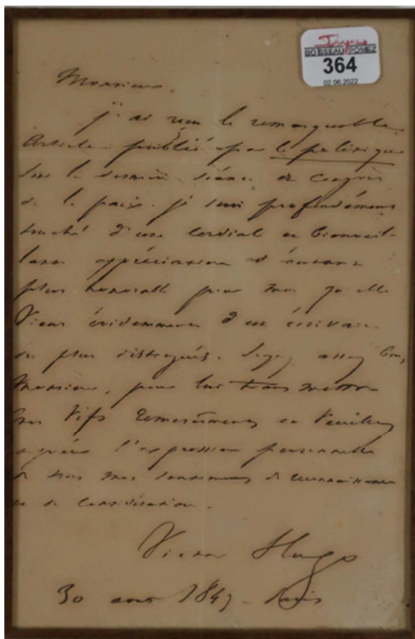 Tajan
ROSSEAU POMEZ
364
02.06.2022
Monsieur,
j'ai reçu le remarquable
article publié par le politique
sur la dernière séance du congrès
de la paix. je suis profondément
touché d'une cordiale et bienveil-
lante appréciation d'autant
plus honorable pour moi qu'elle
vient évidemment d'un écrivain
des plus distingués. Soyez assez bon,
Monsieur, pour lui transmettre
mes vifs remerciements et veuillez
agréer l'expression personnelle
de tous mes sentiments de reconnaissance
et de considération.
Victor Hugo
30 août 1849 - Paris